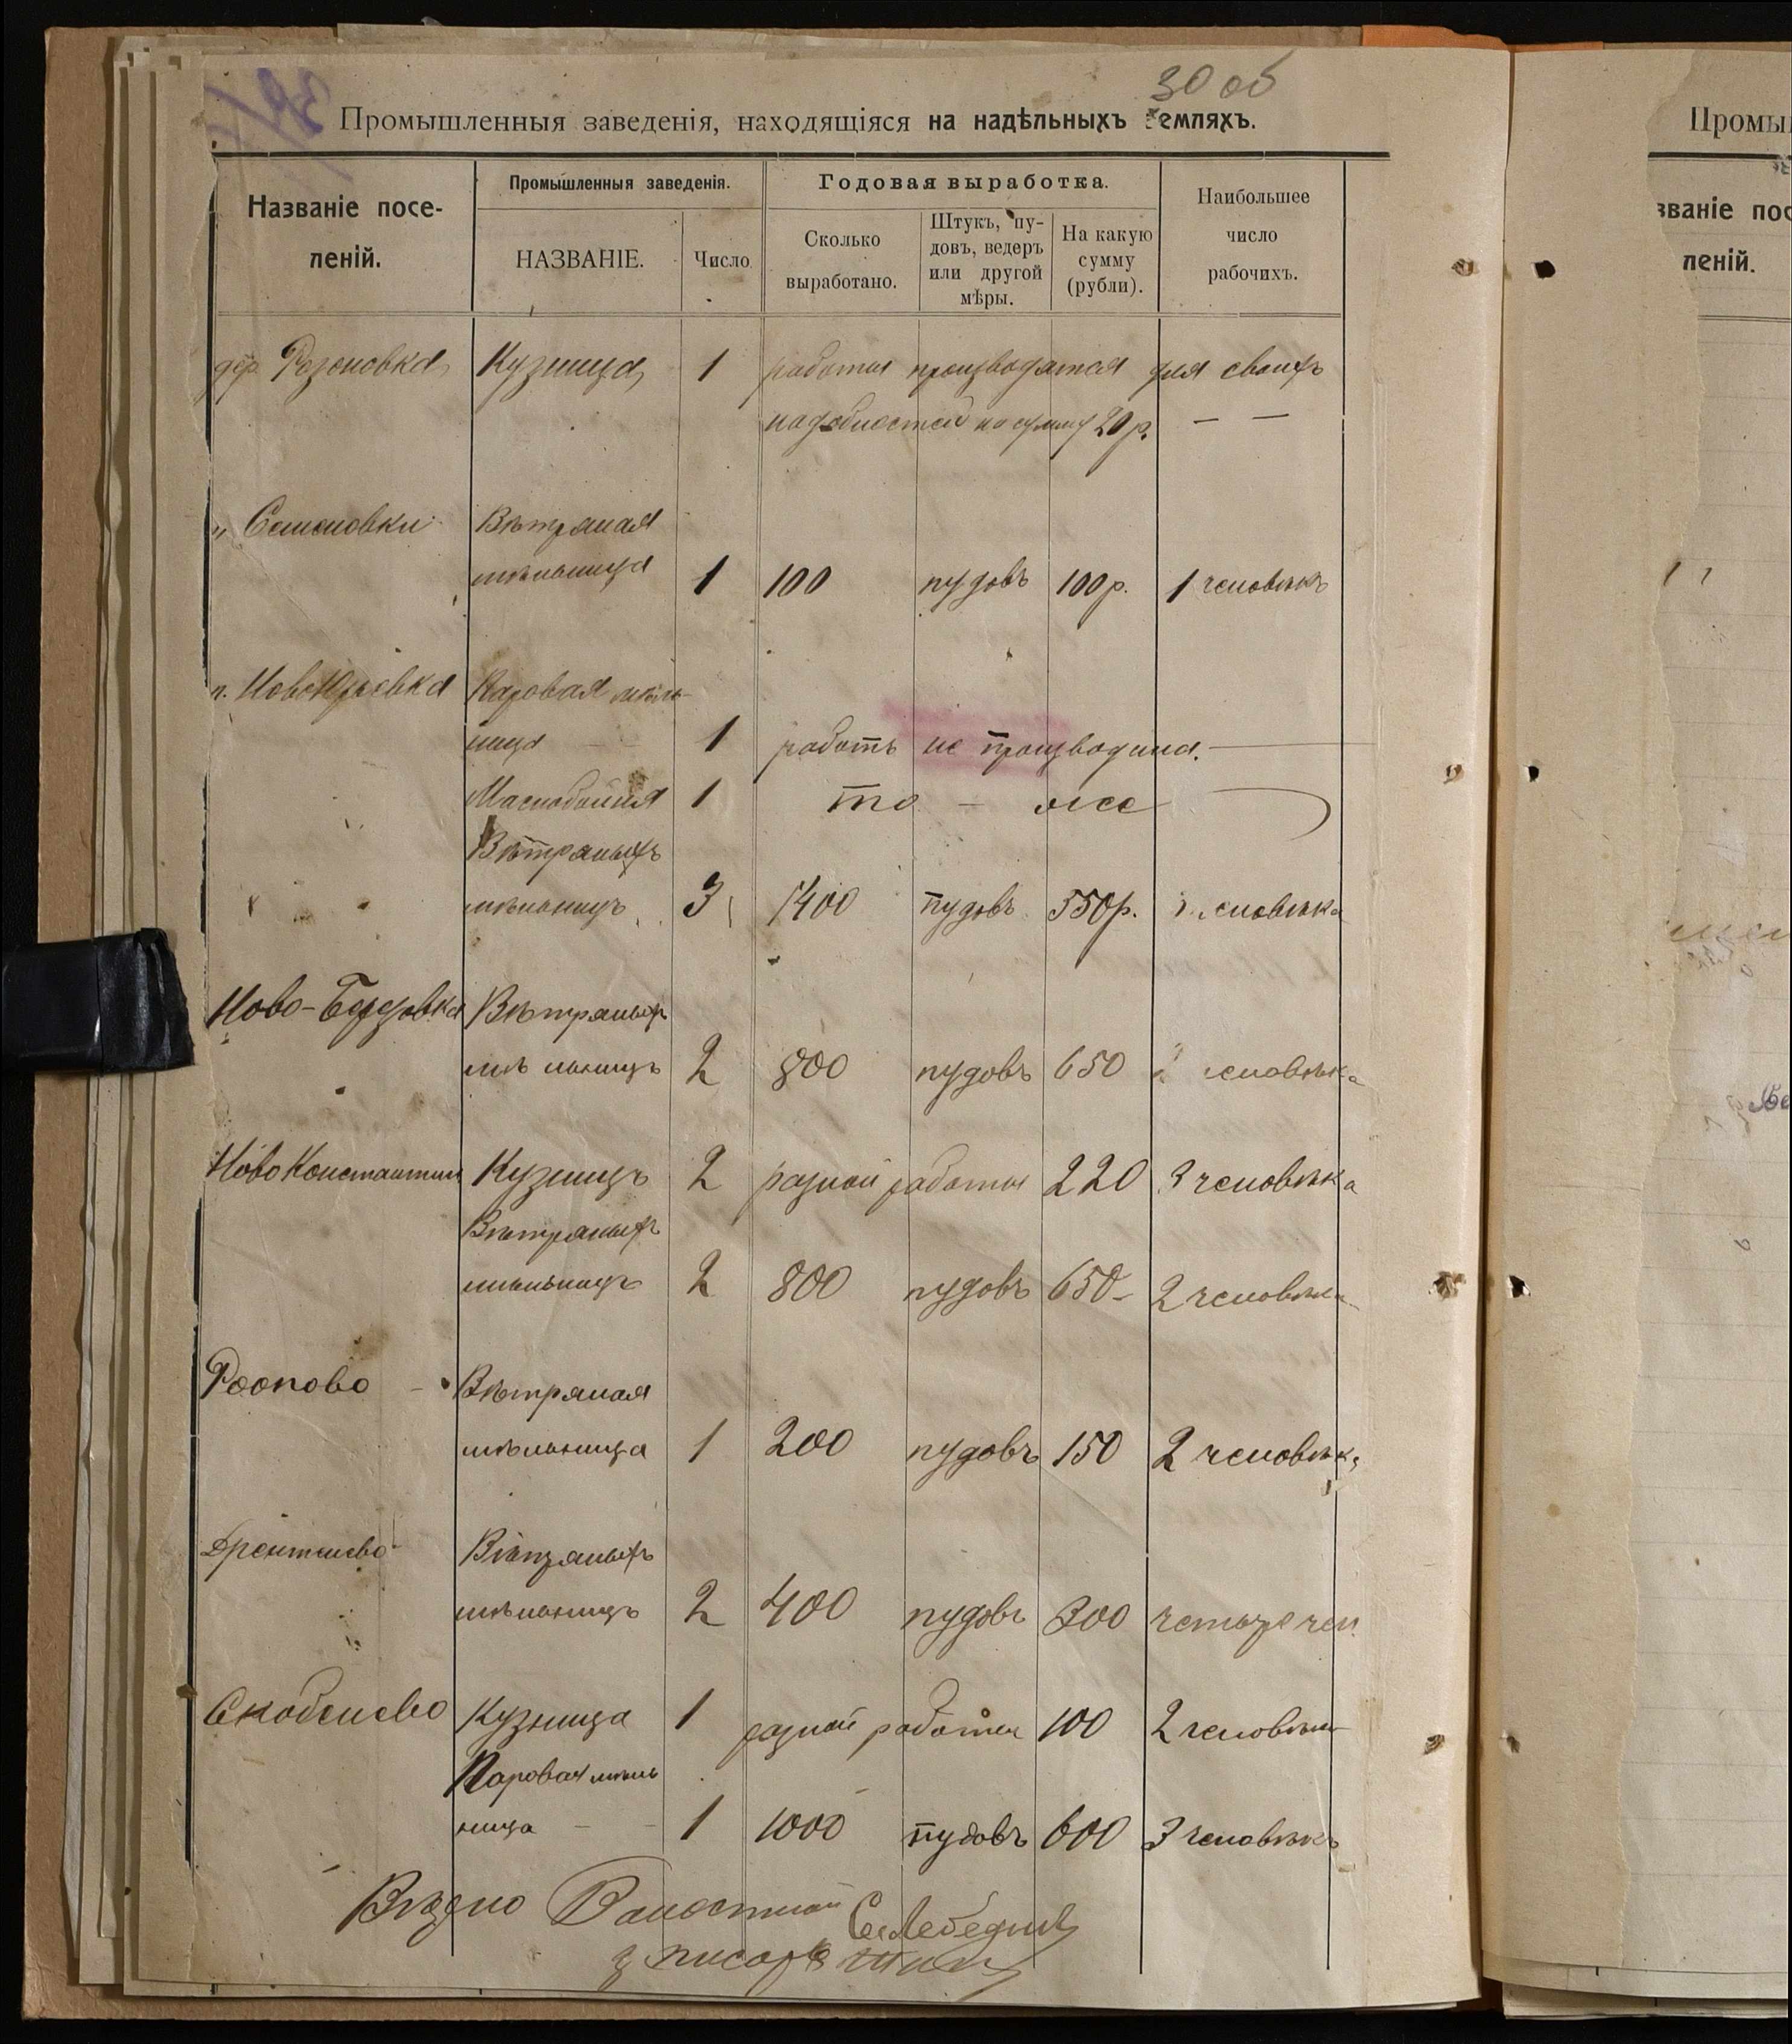 30 об
Промышленныя заведенія, находящіяся на надѣльныхъ земляхъ.
Названіе посе-
леній.
Промышленныя заведенія.
НАЗВАНІЕ.
Число
Годовая выработка.
Сколько
выработано.
Штукъ, пу-
довъ, ведеръ
или другой
мѣры.
На какую
сумму
(рубли).
Наибольшее
число
рабочихъ.
дер. Розоновка Кузница 1 работы производятся для своихъ
надобностей на сумму 20 р. — —
„ Семеновки Вѣтряная
мѣльница 1 100 пудовъ 100 р. 1 человѣкъ
Паровая мѣль-
ница — 1 работъ не производила. —
Маслобойня 1 то — же
Вѣтряныхъ
мѣльницъ 3 1400 пудовъ 550 р. человѣка
Вѣтряныхъ
мѣльницъ 2 800 пудовъ 650 человѣка
Ново Константин Кузницъ 2 разной работы 220 3 человѣка
Вѣтряныхъ
мѣльницъ 2 800 пудовъ 650 — 2 человѣка
Роопово — Вѣтряная
мѣльница 1 200 пудовъ 150 2 человѣка
Дрентельево Вѣтряныхъ
мѣльницъ 2 400 пудовъ 300 четыре чел.
Скобелево Кузница 1 разной работы 100 2 человѣка
Паровая мѣль
ница — — 1 1000 пудовъ 600 3 человѣкъ
Вѣрно Волостной
писарь
Промы
званіе пос
леній.